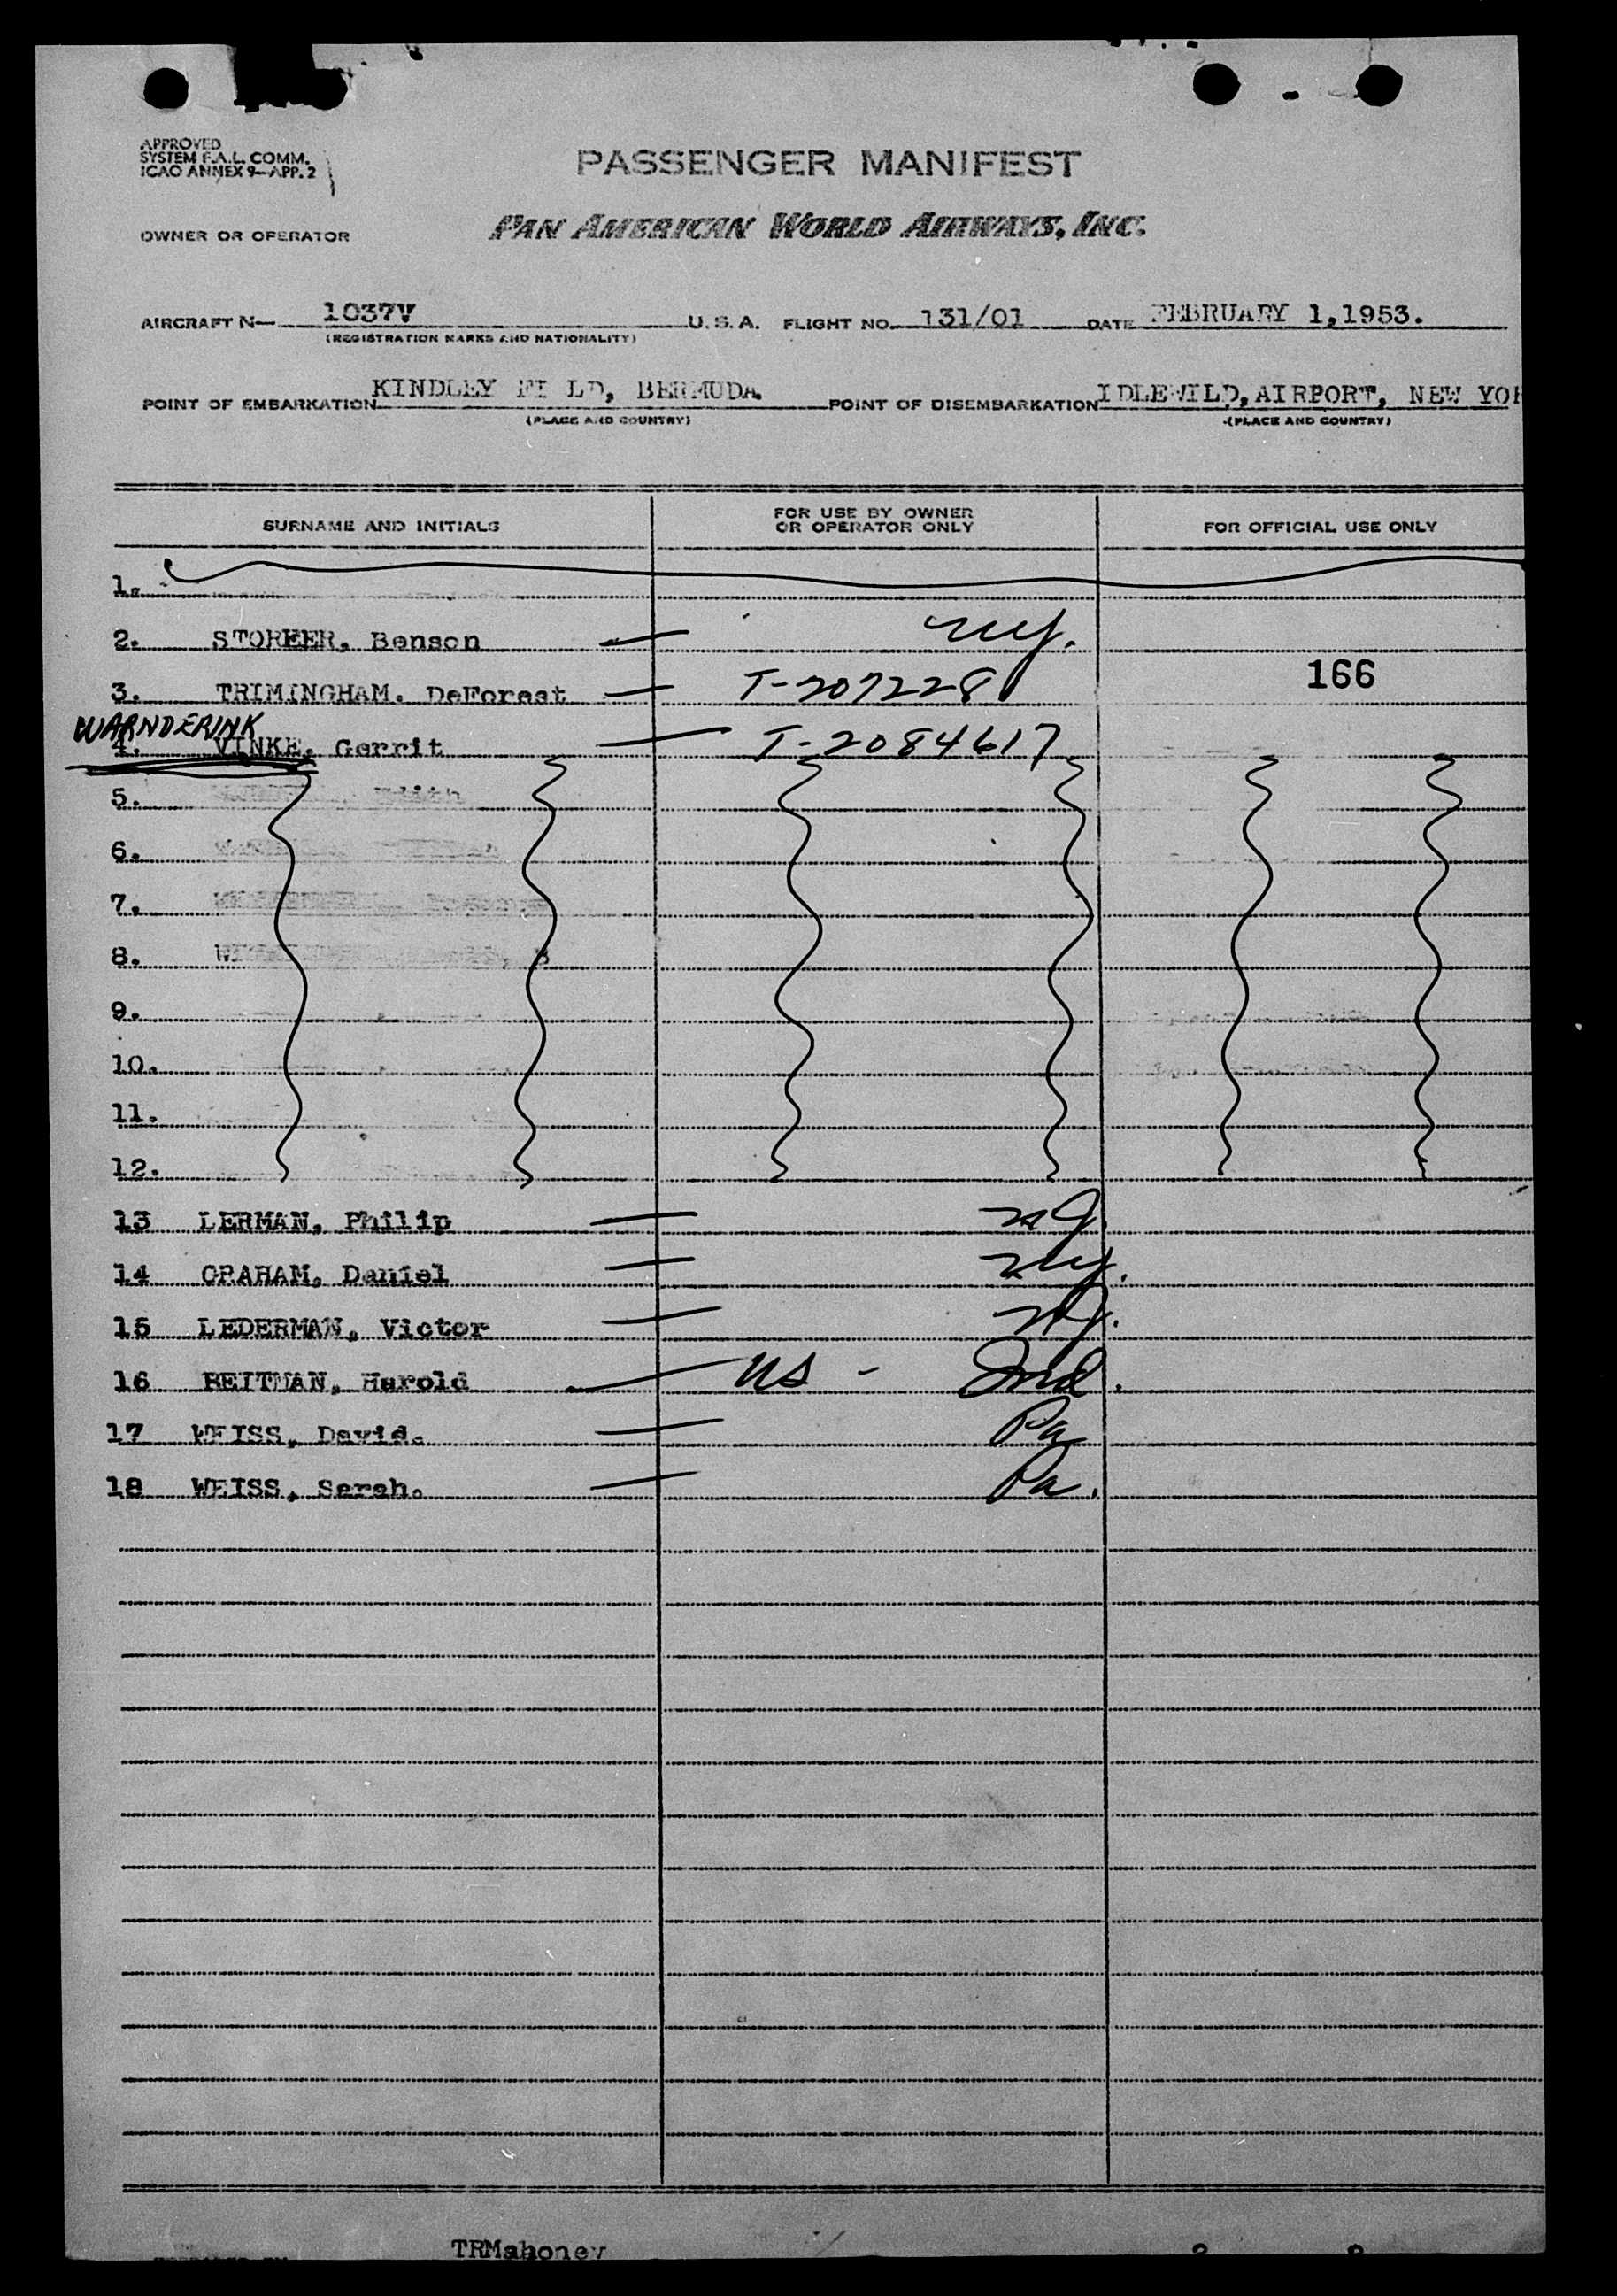 APPROVED
SYSTEM F.A.L. COMM.
ICAO ANNEX 9—APP. 2
PASSENGER MANIFEST
OWNER OR OPERATOR PAN AMERICAN WORLD AIRWAYS, INC.
AIRCRAFT N— 1037V U. S. A. FLIGHT NO. 131/01 DATE FEBRUARY 1,1953.
(REGISTRATION MARKS AND NATIONALITY)
POINT OF EMBARKATION KINDLEY FI LD, BERMUDA. POINT OF DISEMBARKATION IDLEWILD, AIRPORT, NEW YOR
(PLACE AND COUNTRY) (PLACE AND COUNTRY)
SURNAME AND INITIALS FOR USE BY OWNER OR OPERATOR ONLY FOR OFFICIAL USE ONLY
1.
2. STOREER, Benson ny.
3. TRIMINGHAM. DeForest T-207228 166
WARNDERINK
4. VINKE, Gerrit T-2084617
5. Edith
6.
7.
8.
9.
10.
11.
12.
13 LERMAN, Philip nJ.
14 GRAHAM, Daniel ny.
15 LEDERMAN, Victor nJ.
16 REITMAN, Harold US - Ind.
17 WEISS, David. Pa
18 WEISS, Sarah. Pa.
TRMahoney